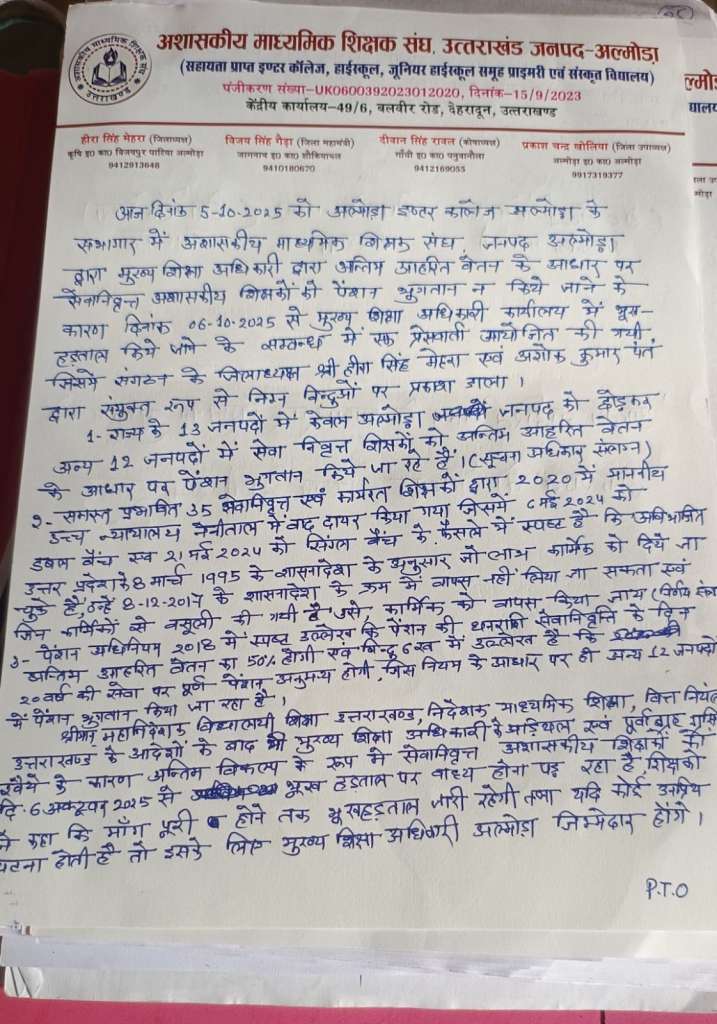 अशासकीय माध्यमिक शिक्षक संघ, उत्तराखंड जनपद-अल्मोड़ा
(सहायता प्राप्त इण्टर कॉलेज, हाईस्कूल, जूनियर हाईस्कूल समूह प्राइमरी एवं संस्कृत विद्यालय)
पंजीकरण संख्या-UK0600392023012020, दिनांक-15/9/2023
केंद्रीय कार्यालय-49/6, बलवीर रोड, देहरादून, उत्तराखण्ड
हीरा सिंह मेहरा (जिलाध्यक्ष) विजय सिंह गैड़ा (जिला महामंत्री) दीवान सिंह रावल (कोषाध्यक्ष) प्रकाश चन्द्र खोलिया (जिला उपाध्यक्ष)
कृषि इ0 का0 विजयपुर पाटिया अल्मोड़ा जागनाथ इ0 का0 शौकियाथल गाँधी इ0 का0 पनुवानौला अल्मोड़ा इ0 का0 अल्मोड़ा
9412913648 9410180670 9412169055 9917319377
आज दिनांक 5-10-2025 को अल्मोड़ा इण्टर कालेज अल्मोड़ा के
सभागार में अशासकीय माध्यमिक शिक्षक संघ, जनपद अल्मोड़ा
द्वारा मुख्य शिक्षा अधिकारी द्वारा अन्तिम आहरित वेतन के आधार पर
सेवानिवृत्त अशासकीय शिक्षकों को पेंशन भुगतान न किये जाने के
कारण दिनांक 06-10-2025 से मुख्य शिक्षा अधिकारी कार्यालय में भूख-
हड़ताल किये जाने के सम्बन्ध में एक प्रेसवार्ता आयोजित की गयी
जिसमें संगठन के जिलाध्यक्ष श्री हीरा सिंह मेहरा एवं अशोक कुमार पंत
द्वारा संयुक्त रूप से निम्न बिन्दुओं पर प्रकाश डाला।
1- राज्य के 13 जनपदों में केवल अल्मोड़ा जनपद को छोड़कर
अन्य 12 जनपदों में सेवा निवृत्त शिक्षकों को अन्तिम आहरित वेतन
के आधार पर पेंशन भुगतान किये जा रहे हैं। (सूचना अधिकार संलग्न)
2- समस्त प्रभावित 35 सेवानिवृत्त एवं कार्यरत शिक्षकों द्वारा 2020 में माननीय
उच्च न्यायालय नैनीताल में वाद दायर किया गया जिसमें 6 मई 2024 को
डबल बैंच एवं 21 मई 2024 को सिंगल बैंच के फैसले में स्पष्ट है कि अविभाजित
उत्तर प्रदेश के 8 मार्च 1995 के शासनादेश के अनुसार जो लाभ कार्मिक को दिये जा
चुके हैं, उन्हें 8-12-2017 के शासनादेश के क्रम में वापस नहीं लिया जा सकता एवं
जिन कार्मिकों से वसूली की गयी है उसे, कार्मिक को वापस किया जाय (निर्णय संल
3- पेंशन अधिनियम 2018 में स्पष्ट उल्लेख कि पेंशन की धनराशि सेवानिवृत्ति के दिन
अन्तिम आहरित वेतन का 50% होगी एवं बिन्दु 6 ख में उल्लेख है कि
20 वर्ष की सेवा पर पूर्ण पेंशन अनुमन्य होगी, जिस नियम के आधार पर ही अन्य 12 जनपदों
में पेंशन भुगतान किया जा रहा है।
श्रीमान् महानिदेशक विद्यालयी शिक्षा उत्तराखण्ड, निदेशक माध्यमिक शिक्षा, वित्त नियंत्र
उत्तराखण्ड के आदेशों के बाद भी मुख्य शिक्षा अधिकारी के अड़ियल एवं पूर्वाग्रह ग्रसि
रवैये के कारण अन्तिम विकल्प के रूप में सेवानिवृत्त अशासकीय शिक्षकों को
दि. 6 अक्टूबर 2025 से भूख हड़ताल पर बाध्य होना पड़ रहा है, शिक्षकों
ने कहा कि माँग पूरी होने तक भूखहड़ताल जारी रहेगी तथा यदि कोई अप्रिय
घटना होती है तो इसके लिए मुख्य शिक्षा अधिकारी अल्मोड़ा जिम्मेदार होंगे।
P.T.O